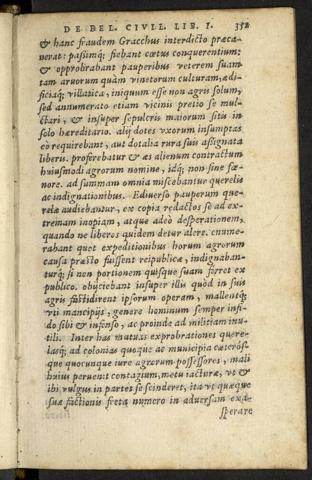 DE BEL. CIVIL. LIB. I. 352
& hanc fraudem Gracchus interdicto præca-
uerat: passimq; fiebant cœtus conquerentium:
& opprobrabant pauperibus veterem suam
tam aruorum quàm vinetorum culturam, ædi-
ficiaq; villatica, iniquum esse non agris solum,
sed annumerato etiam vicinis pretio se mul-
ctari, & insuper sepulcris maiorum sitis in
solo hæreditario. alij dotes vxorum insumptas
eò requirebant, aut dotalia rura suis assignata
liberis. proferebatur & æs alienum contractum
huiusmodi agrorum nomine, idq; non sine fœ-
nore. ad summam omnia miscebantur querelis
ac indignationibus. E diuerso pauperum que-
relæ audiebantur, ex copia redactos se ad ex-
tremam inopiam, atque adeò desperationem,
quando ne liberos quidem detur alere. enume-
rabant quot expeditionibus horum agrorum
causa præsto fuissent reipublicæ, indignaban-
turq; si non portionem quisque suam ferret ex
publico. obijciebant insuper illis quòd in suis
agris fastidirent ipsorum operam, mallentq;
vti mancipijs, genere hominum semper infi-
do sibi & infenso, ac proinde ad militiam inu-
tili. Inter has mutuas exprobrationes quere-
lasq; ad colonias quoque ac municipia cæterósq;
que quocunque iure agrorum possessores, mali
huius peruenit contagium, metu iacturæ, vt &
ibi vulgus in partes se scinderet, ita vt quæque
suæ factionis freta numero in aduersam exa-
sperare